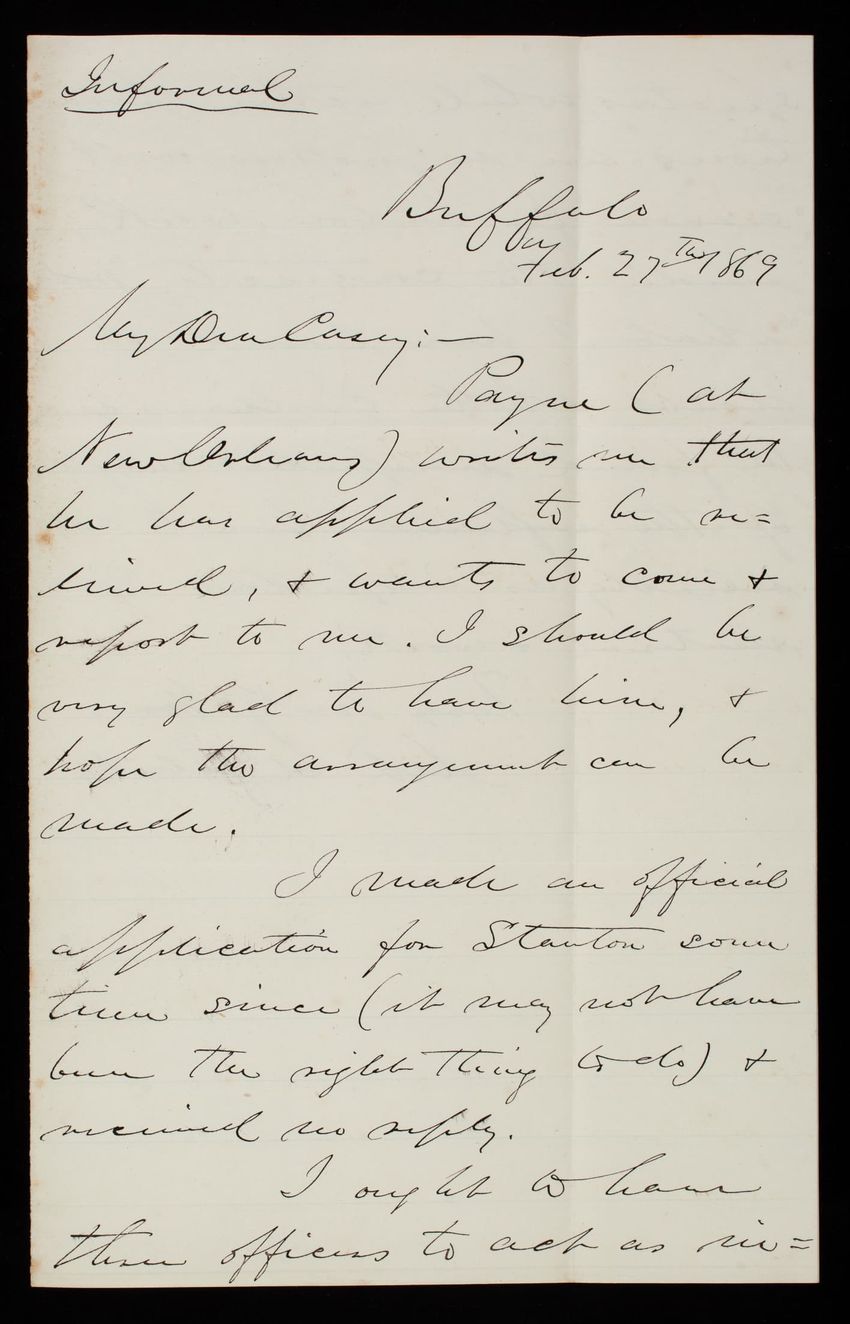 Informal
Buffalo
NY
Feb. 27th 1869
My Dear Casey:—
Payne (at
New Orleans) writes me that
he has applied to be re=
lieved, & wants to come &
report to me. I should be
very glad to have him, &
hope the arrangement can be
made.
I made an official
application for Stanton some
time since (it may not have
been the right thing to do) &
received no reply.
I ought to have
three officers to act as in=